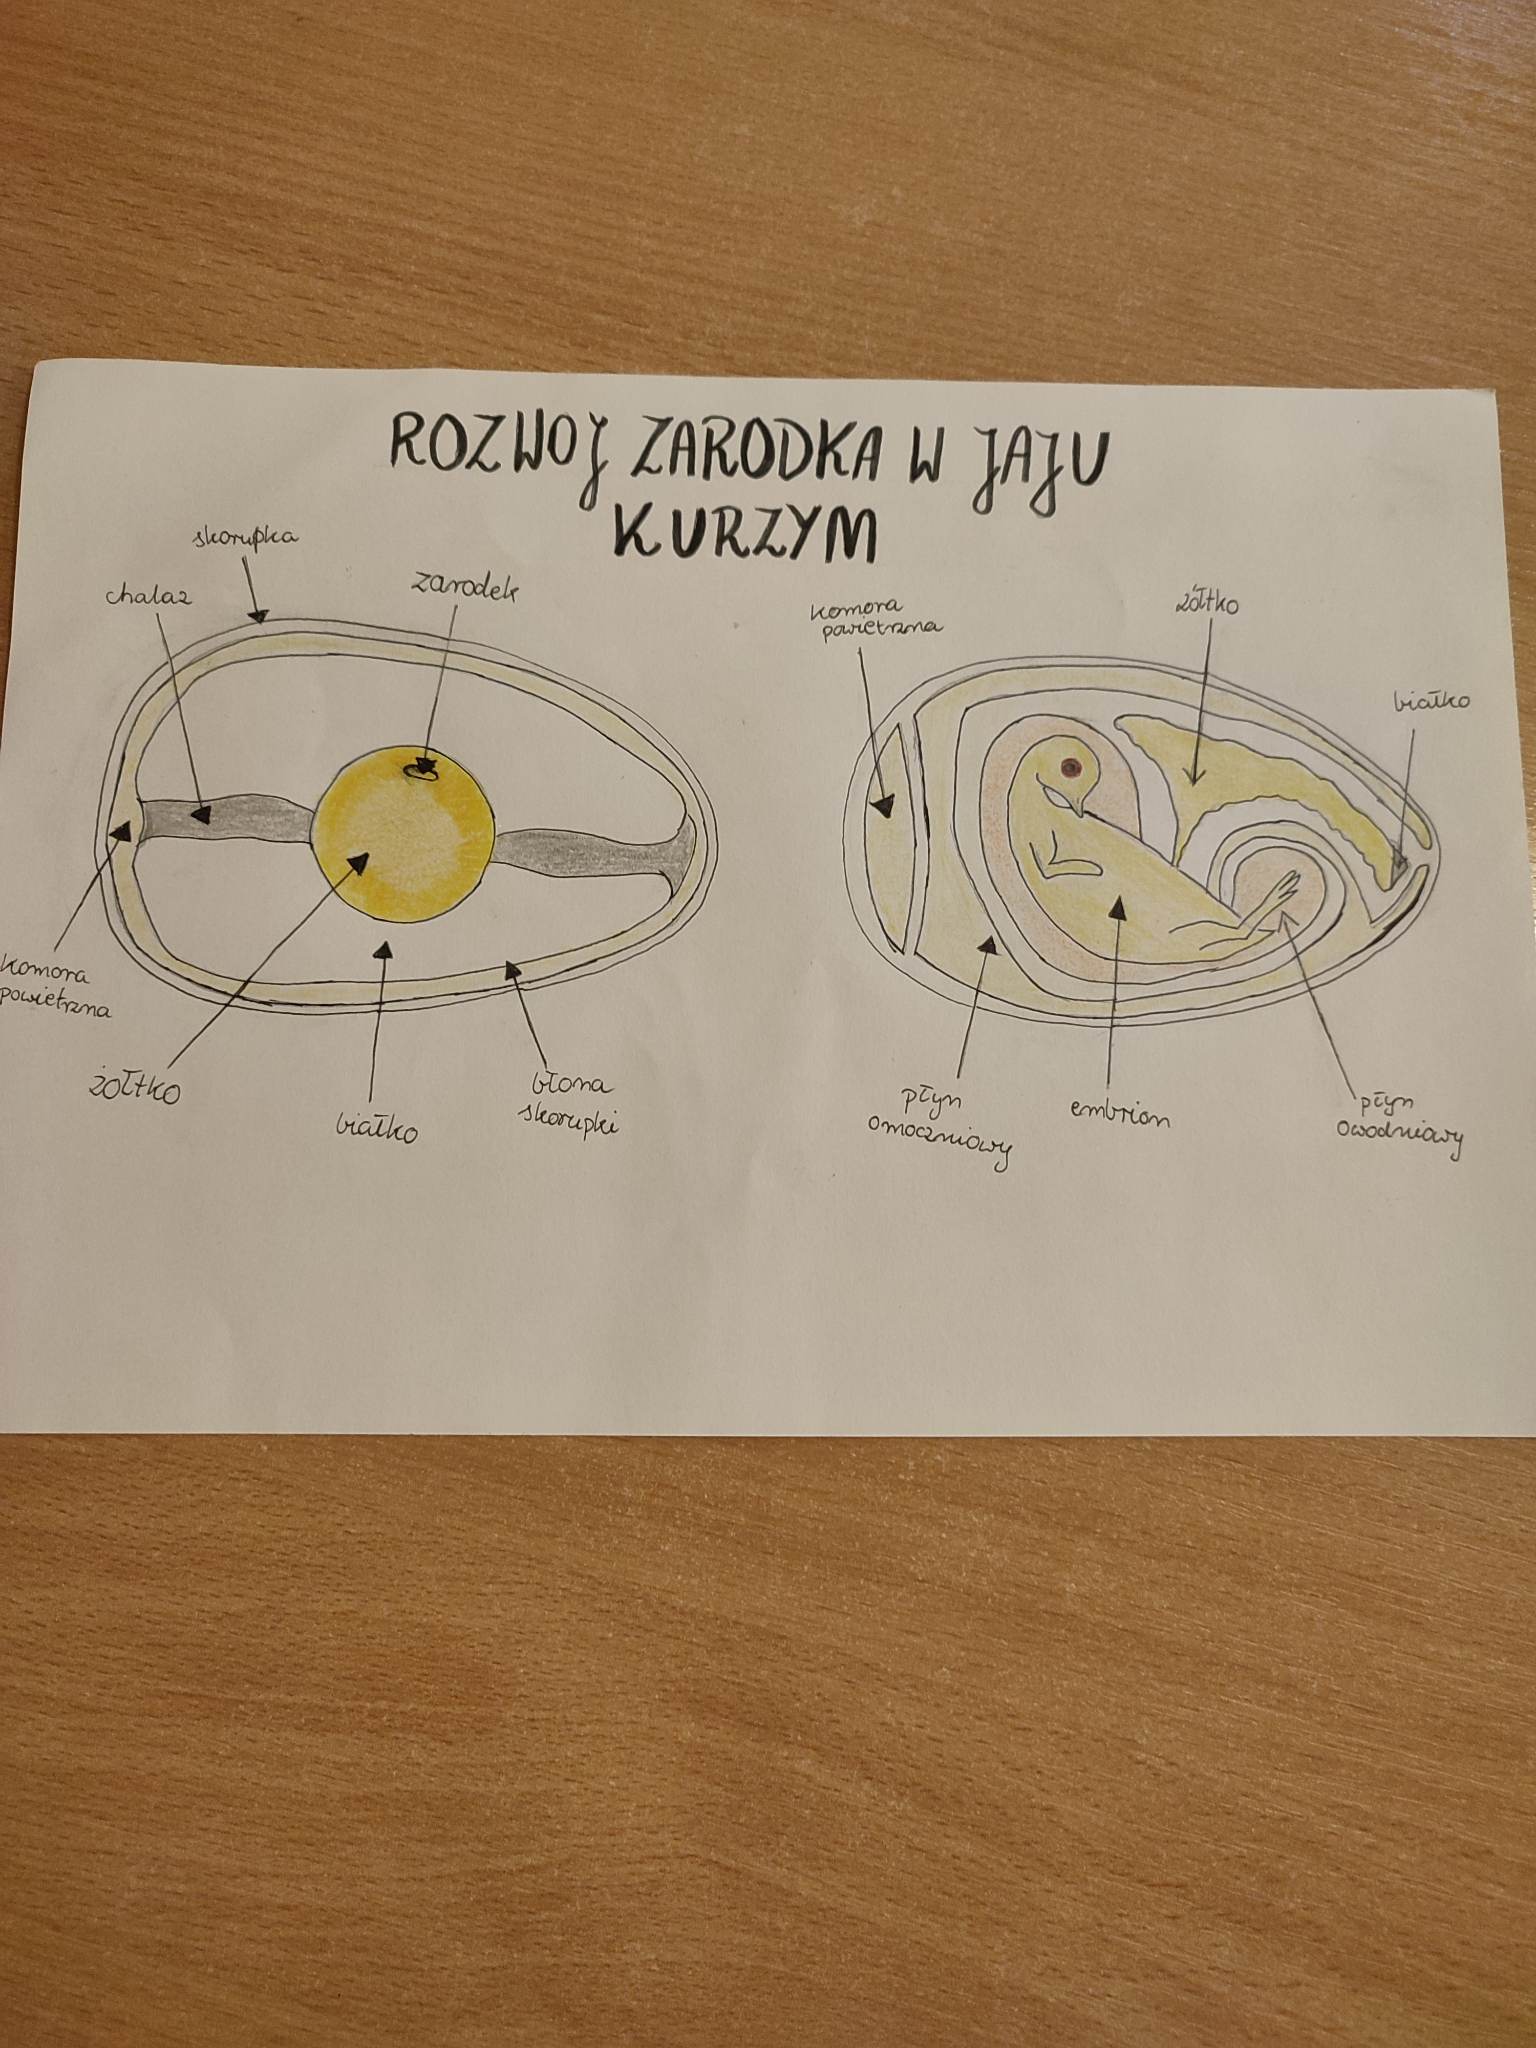 ROZWOJ ZARODKA W JAJU
KURZYM
skorupka
chalaz
zarodek
komora
powietrzna
żółtko
białko
błona
skorupki
komora
powietrzna
żółtko
białko
płyn
omoczniowy
embrion
płyn
owodniowy